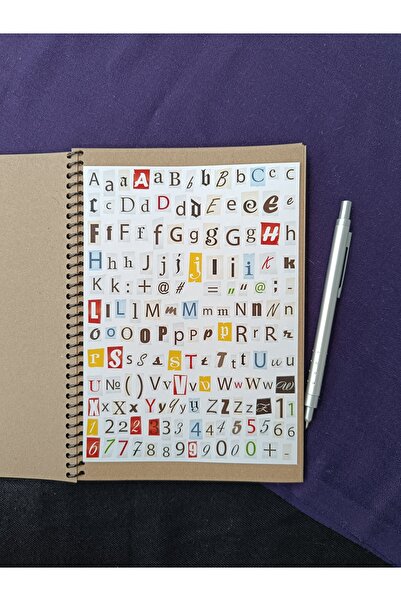 A a a A a B b b B b C c C
t c D d D d E e e E e e
F f F f f G g g G g H H h
H h h J j j j I i i K k
K k : + @ # = " " @ ; -
L l L l M m M m m N n N n
O o O O P P p p p R R r
r S S s s s T t T t t U u u
U № ( ) V v V v v W w W w w
X x X x Y y y y Z Z z z 1 1
1 2 2 2 3 3 4 4 4 5 5 5 6 6
6 7 7 7 8 8 8 9 9 9 0 0 0 + -